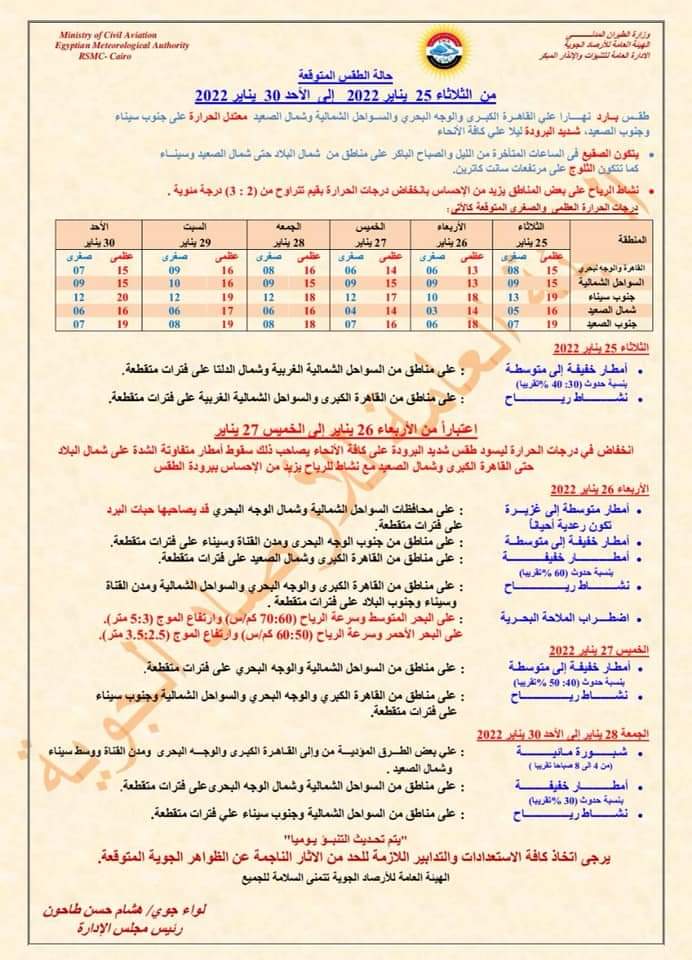 Ministry of Civil Aviation
Egyptian Meteorological Authority
RSMC- Cairo
وزارة الطيران المدنـــي
الهيئة العامة للأرصاد الجوية
الادارة العامة للتنبؤات والإنذار المبكر
حالة الطقس المتوقعة
من الثلاثاء 25 يناير 2022 إلى الأحد 30 يناير 2022
طقس بارد نهارا علي القاهرة الكبرى والوجه البحري والسواحل الشمالية وشمال الصعيد معتدل الحرارة على جنوب سيناء
وجنوب الصعيد، شديد البرودة ليلا علي كافة الأنحاء
• يتكون الصقيع فى الساعات المتأخرة من الليل والصباح الباكر على مناطق من شمال البلاد حتى شمال الصعيد وسيناء
كما تتكون الثلوج على مرتفعات سانت كاترين.
• نشاط الرياح على بعض المناطق يزيد من الإحساس بانخفاض درجات الحرارة بقيم تتراوح من (2 : 3) درجة مئوية .
درجات الحرارة العظمى والصغرى المتوقعة كالآتي:
المنطقة الثلاثاء الأربعاء الخميس الجمعه السبت الأحد
25 يناير 26 يناير 27 يناير 28 يناير 29 يناير 30 يناير
عظمى صغرى عظمى صغرى عظمى صغرى عظمى صغرى عظمى صغرى عظمى صغرى
القاهره والوجه البحري 15 08 13 06 14 06 16 08 16 09 15 07
السواحل الشمالية 15 09 13 09 15 09 16 09 16 10 15 09
جنوب سيناء 19 13 18 10 17 12 18 12 19 12 20 12
شمال الصعيد 16 05 14 03 14 04 16 06 17 06 16 06
جنوب الصعيد 19 07 18 06 16 07 18 08 19 08 19 07
الثلاثاء 25 يناير 2022
• أمطار خفيفة إلى متوسطة : على مناطق من السواحل الشمالية الغربية وشمال الدلتا على فترات متقطعة.
بنسبة حدوث (30: 40 %تقريبا)
• نشـــاط ريـــاح : على مناطق من القاهرة الكبرى والسواحل الشمالية الغربية على فترات متقطعة.
اعتباراً من الأربعاء 26 يناير إلى الخميس 27 يناير
انخفاض في درجات الحرارة ليسود طقس شديد البرودة على كافة الأنحاء يصاحب ذلك سقوط أمطار متفاوتة الشدة على شمال البلاد
حتى القاهرة الكبرى وشمال الصعيد مع نشاط للرياح يزيد من الإحساس ببرودة الطقس
الأربعاء 26 يناير 2022
• أمطار متوسطة إلى غزيـرة : على محافظات السواحل الشمالية وشمال الوجه البحري قد يصاحبها حبات البرد
تكون رعدية أحياناً على فترات متقطعة.
• أمطار خفيفـة إلى متوسطة : على مناطق من جنوب الوجه البحرى ومدن القناة وسيناء على فترات متقطعة.
• أمطـــار خفيفـــــة : على مناطق من القاهرة الكبرى وشمال الصعيد على فترات متقطعة.
بنسبة حدوث (60 %تقريبا)
• نشـــاط ريـــــاح : على مناطق من القاهرة الكبرى والوجه البحري والسواحل الشمالية ومدن القناة
وسيناء وجنوب البلاد على فترات متقطعة .
• اضطراب الملاحة البحرية : على البحر المتوسط وسرعة الرياح (70:60 كم/س) وارتفاع الموج (5:3 متر).
على البحر الأحمر وسرعة الرياح (60:50 كم/س) وارتفاع الموج (3.5:2.5 متر).
الخميس 27 يناير 2022
• أمطار خفيفـة إلى متوسطـة : على مناطق من السواحل الشمالية والوجه البحري على فترات متقطعة.
بنسبة حدوث (40: 50 %تقريبا)
• نشـــاط ريـــــاح : على مناطق من القاهرة الكبري والوجه البحري والسواحل الشمالية وجنوب سيناء
على فترات متقطعة.
الجمعة 28 يناير إلى الأحد 30 يناير 2022
• شبـــورة مـائيــــة : علي بعض الطرق المؤديـة من وإلى القاهـرة الكبرى والوجـه البحرى ومدن القناة ووسط سيناء
(من 4 الى 8 صباحا تقريبا ) وشمال الصعيد .
• أمطـــار خفيفـــة : على مناطق من السواحل الشمالية وشمال الوجه البحرى على فترات متقطعة.
بنسبة حدوث (30 %تقريبا)
• نشـــاط ريـــــاح : على مناطق من السواحل الشمالية وجنوب سيناء علي فترات متقطعة.
"يتم تحديث التنبـؤ يـوميـا"
يرجى اتخاذ كافة الاستعدادات والتدابير اللازمة للحد من الآثار الناجمة عن الظواهر الجوية المتوقعة.
الهيئة العامة للأرصاد الجوية تتمنى السلامة للجميع
لواء جوي/ هشام حسن طاحون
رئيس مجلس الإدارة
الهيئة العامة للأرصاد الجوية